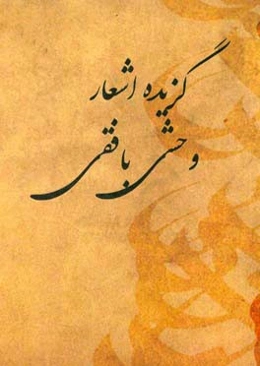 گزیده اشعار
وحشی بافقی